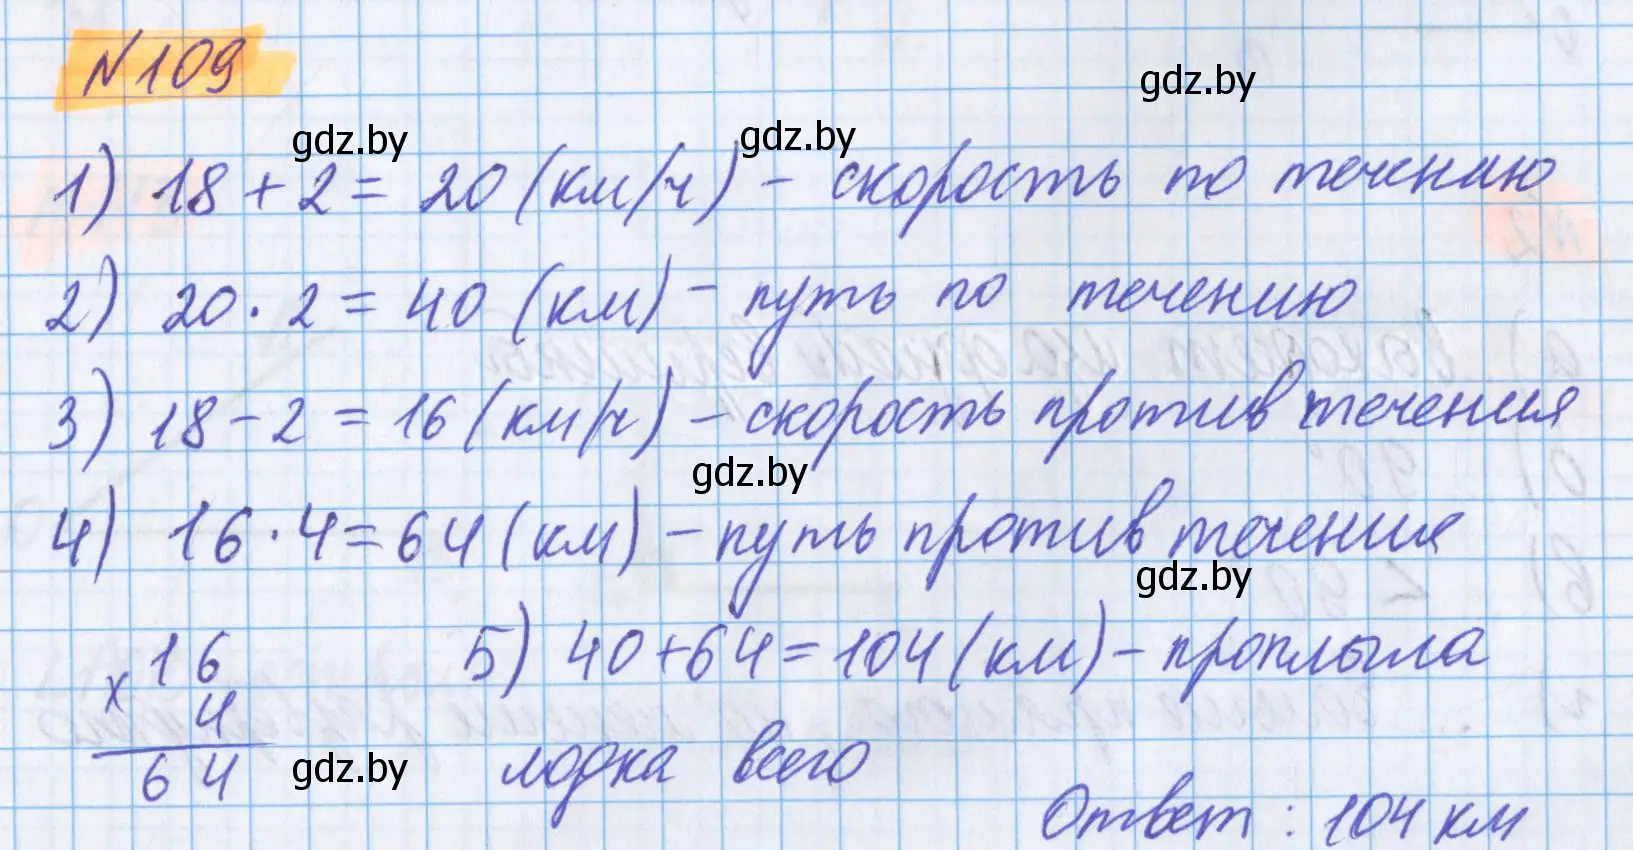 N109
gdz.by
gdz.by
gdz.by
1) 18 + 2 = 20 (км/ч) - скорость по течению
2) 20 · 2 = 40 (км) - путь по течению
3) 18 - 2 = 16 (км/ч) - скорость против течения
gdz.by
4) 16 · 4 = 64 (км) - путь против течения
gdz.by
16
× 4
64
5) 40 + 64 = 104 (км) - проплыла
лодка всего
gdz.by
Ответ: 104 км